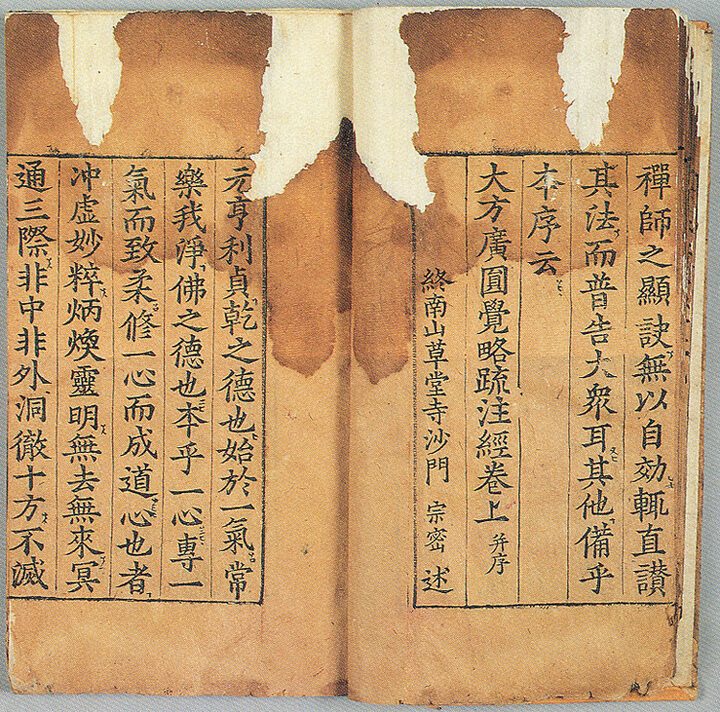 禪師之顯訣無以自効輒直讃
其法而普告大衆耳其他備乎
本序云
大方廣圓覺略䟽注經卷上 并序
終南山草堂寺沙門 宗密 述
元亨利貞乾之德也始於一氣常
樂我淨佛之德也本乎一心專一
氣而致柔修一心而成道心也者
冲虛妙粹炳煥靈明無去無來冥
通三際非中非外洞徹十方不滅